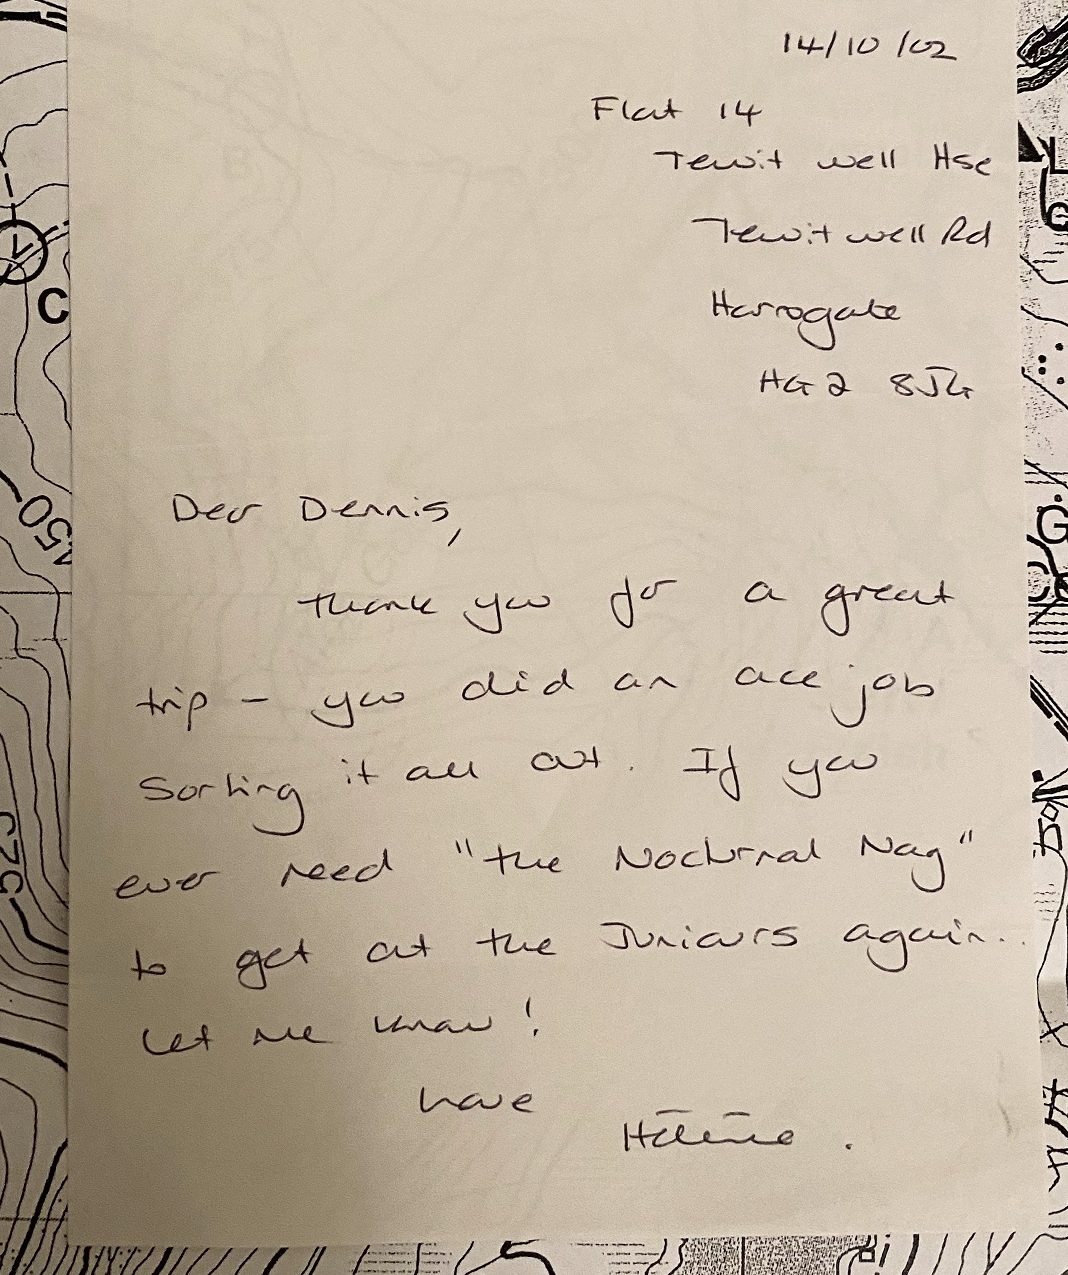 14/10/02
Flat 14
Tewit well Hse
Tewit well Rd
Harrogate
HG2 8JG
Dear Dennis,
thank you for a great
trip - you did an ace job
Sorting it all out. If you
ever need "the Nocturnal Nag"
to get at the Juniours again..
Let me know!
love
Hélène.
C
450
525
G